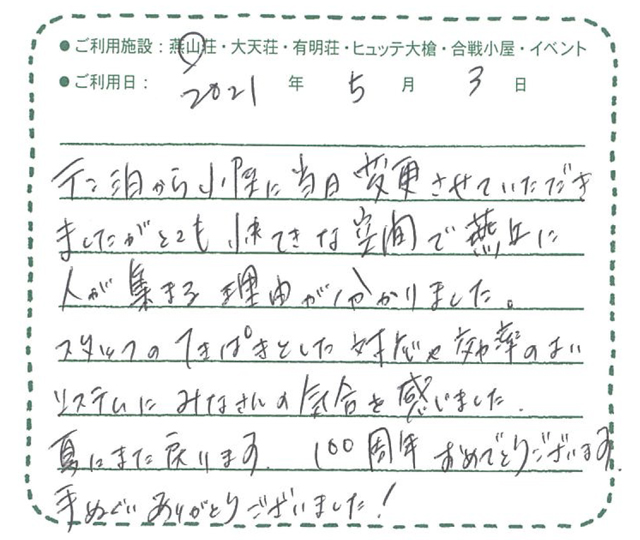 ●ご利用施設：燕山荘・大天荘・有明荘・ヒュッテ大槍・合戦小屋・イベント
●ご利用日： 2021 年 5 月 3 日
テン泊から小屋に当日変更させていただき
ましたがとても快てきな空間で燕山に
人が集まる理由が分かりました。
スタッフのてきぱきとした対応や効率のよい
システムにみなさんの気合を感じました.
夏にまた戻ります. 100周年おめでとうございます.
手ぬぐいありがとうございました！